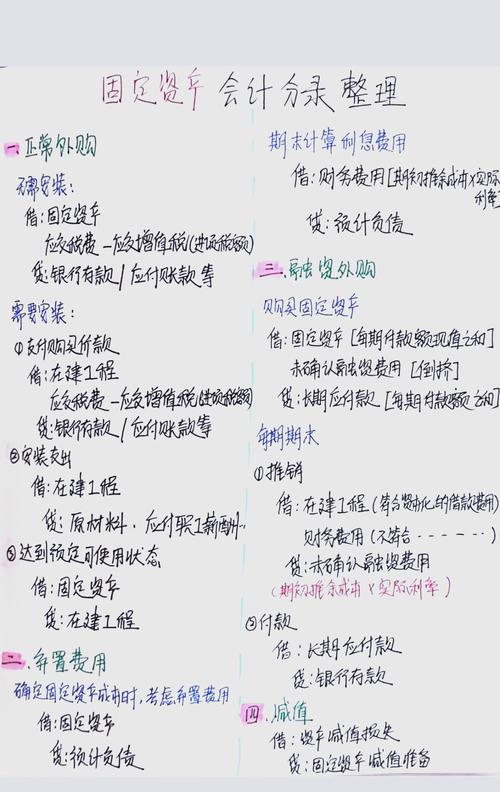 固定资产会计分录整理
一.正常外购
无需安装:
借:固定资产
应交税费-应交增值税(进项税额)
贷:银行存款/应付账款等
需要安装:
①支付购买价款
借:在建工程
应交税费-应交增值税(进项税额)
贷:银行存款/应付账款等
②安装支出
借:在建工程
贷:原材料、应付职工薪酬..
③达到预定可使用状态
借:固定资产
贷:在建工程
二.弃置费用
确定固定资产成本时,考虑弃置费用
借:固定资产
贷:预计负债
期末计算利息费用
借:财务费用[期初摊余成本×实际
利率]
贷:预计负债
三.融资外购
购买固定资产
借:固定资产[每期付款额现值之和]
未确认融资费用[倒挤]
贷:长期应付款[每期付款额之和]
每期期末
①摊销
借:在建工程(符合资本化的借款费用)
财务费用(不符合------)
贷:未确认融资费用
(期初摊余成本×实际利率)
②付款
借:长期应付款
贷:银行存款
四.减值
借:资产减值损失
贷:固定资产减值准备